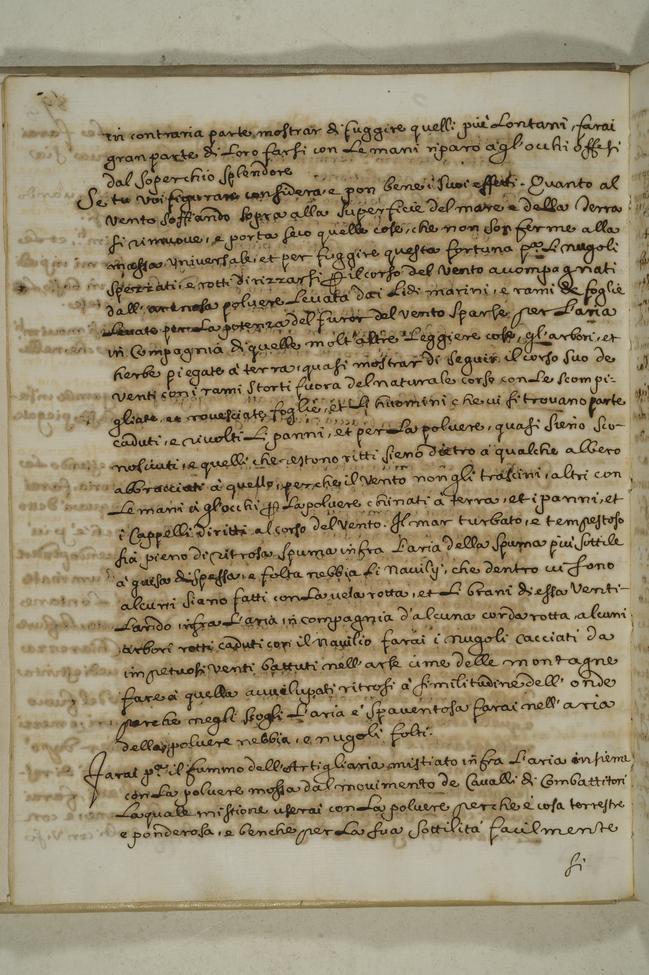 in contraria parte mostrar di fuggire quelli piú Lontani, farai
gran parte di Loro farsi con Le mani riparo agl occhi offesi
dal soperchio splendore
Se tu voi figurare considera e pon bene i suoi effetti. Quanto al
vento soffiando sopra alla superficie del mare e della Terra
si rimuove, e porta seco quelle cose, che non son ferme alla
massa Universale, et per fuggire questa fortuna pª. Li nugoli
spezzati, e rotti dirizzarsi il corso del vento accompagnati
dall'arenosa polvere Levata dai Lidi marini, e rami de foglie
Levato per La potenza del furor del vento sparse per L'aria
in Compagnia di quelle molt'altre Leggiere cose, gl'arbori, et
herbe piegate à terra, quasi mostrar di seguir il corso suo de
venti con i rami storti fuora del naturale corso con Le scompi-
gliate, et rovesciate foglie, et Li huomini che vi si trovano parte
caduti, e rivolti Li panni, et per La polvere, quasi sieno sco-
nosciuti, e quelli che restono ritti sieno dietro à qualche albero
abbracciati à quello, perche il vento non gli trascini, altri con
Le mani à gl'occhi La polvere chinati à terra, et i panni, et
i Cappelli diritti al corso del vento. Il mar turbato, e tempestoso
sia pieno di ritrosa spuma infra L'aria della spuma piú sottile
à guisa di spessa, e folta nebbia Li Navilij, che dentro vi sono
alcuni siano fatti con La vela rotta, et Li brani di essa venti-
Lando infra L'aria, in compagnia d'alcuna corda rotta, alcuni
arbori rotti caduti con il Navilio farai i nugoli cacciati da
impetuosi venti battuti nell'arse cime delle montagne
fare à quella avvelupati ritrosi à similitudine dell'onde
perche negli scogli L'aria è spaventosa farai nell'aria
della polvere nebbia, e nugoli folti.
Farai pª. il fummo dell'Artigliaria mistiato infra L'aria insieme
con La polvere mossa dal movimento de Cavalli di Combattitori
La quale mistione userai con La polvere perche è cosa terrestre
e ponderosa, e benche per La sua sottilità facilmente
si